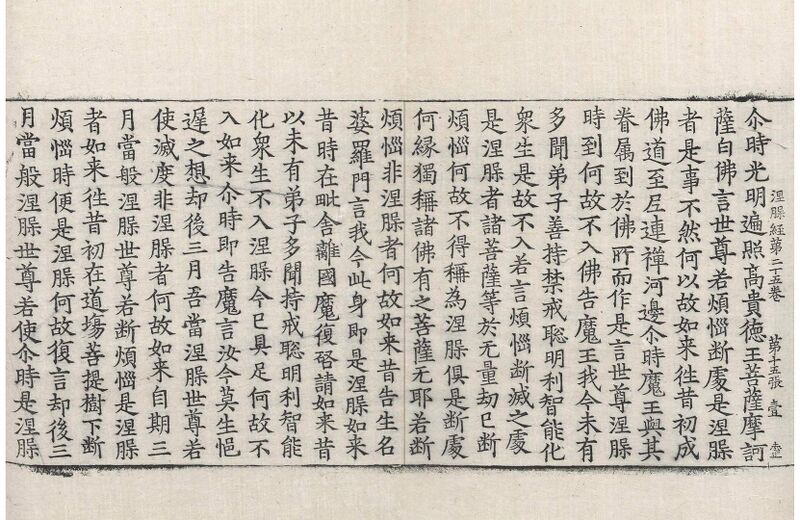 涅槃經第二十五卷 第十五張 壹
尒時光明遍照髙貴徳王菩薩摩訶
薩白佛言世尊若煩惱断處是涅槃
者是事不然何以故如来徃昔初成
佛道至尼連禪河邊尒時魔王與其
眷属到於佛所而作是言世尊涅槃
時到何故不入佛告魔王我今未有
多聞弟子善持禁戒聡明利智能化
衆生是故不入若言煩惱断滅之處
是涅槃者諸菩薩等於无量劫已断
煩惱何故不得稱為涅槃俱是断處
何縁獨稱諸佛有之菩薩无耶若断
煩惱非涅槃者何故如来昔告生名
婆羅門言我今此身即是涅槃如来
昔時在毗舍離國魔復啓請如来昔
以未有弟子多聞持戒聡明利智能
化衆生不入涅槃今已具足何故不
入如来尒時即告魔言汝今莫生悒
遲之想却後三月吾當涅槃世尊若
使滅度非涅槃者何故如来自期三
月當般涅槃世尊若断煩惱是涅槃
者如来徃昔初在道塲菩提樹下断
煩惱時便是涅槃何故復言却後三
月當般涅槃世尊若使尒時是涅槃